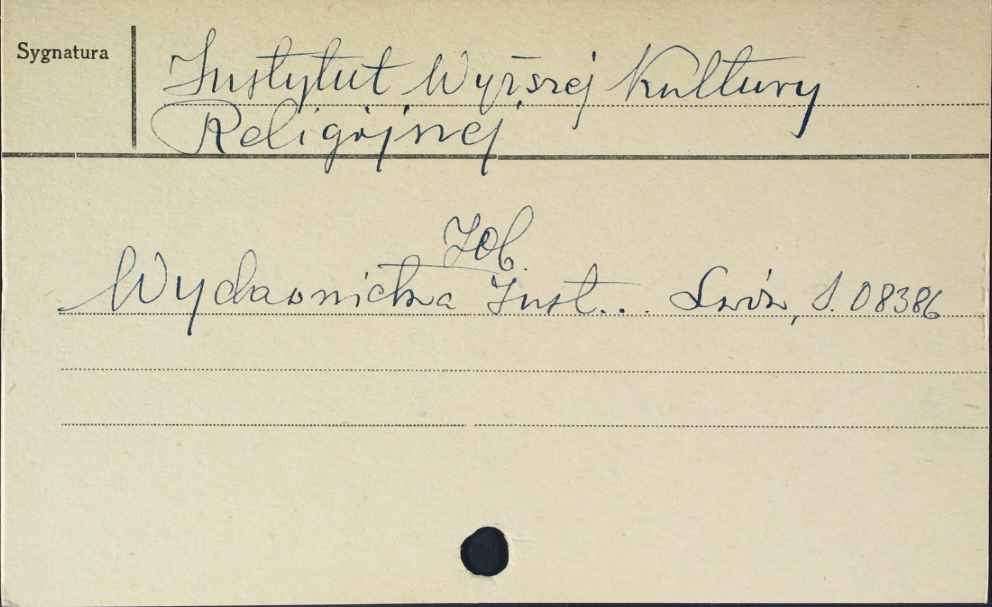 Sygnatura
Instytut Wyższej Kultury
Religijnej
Zob.
Wydawnictwa Inst... Lwów, S. 08386